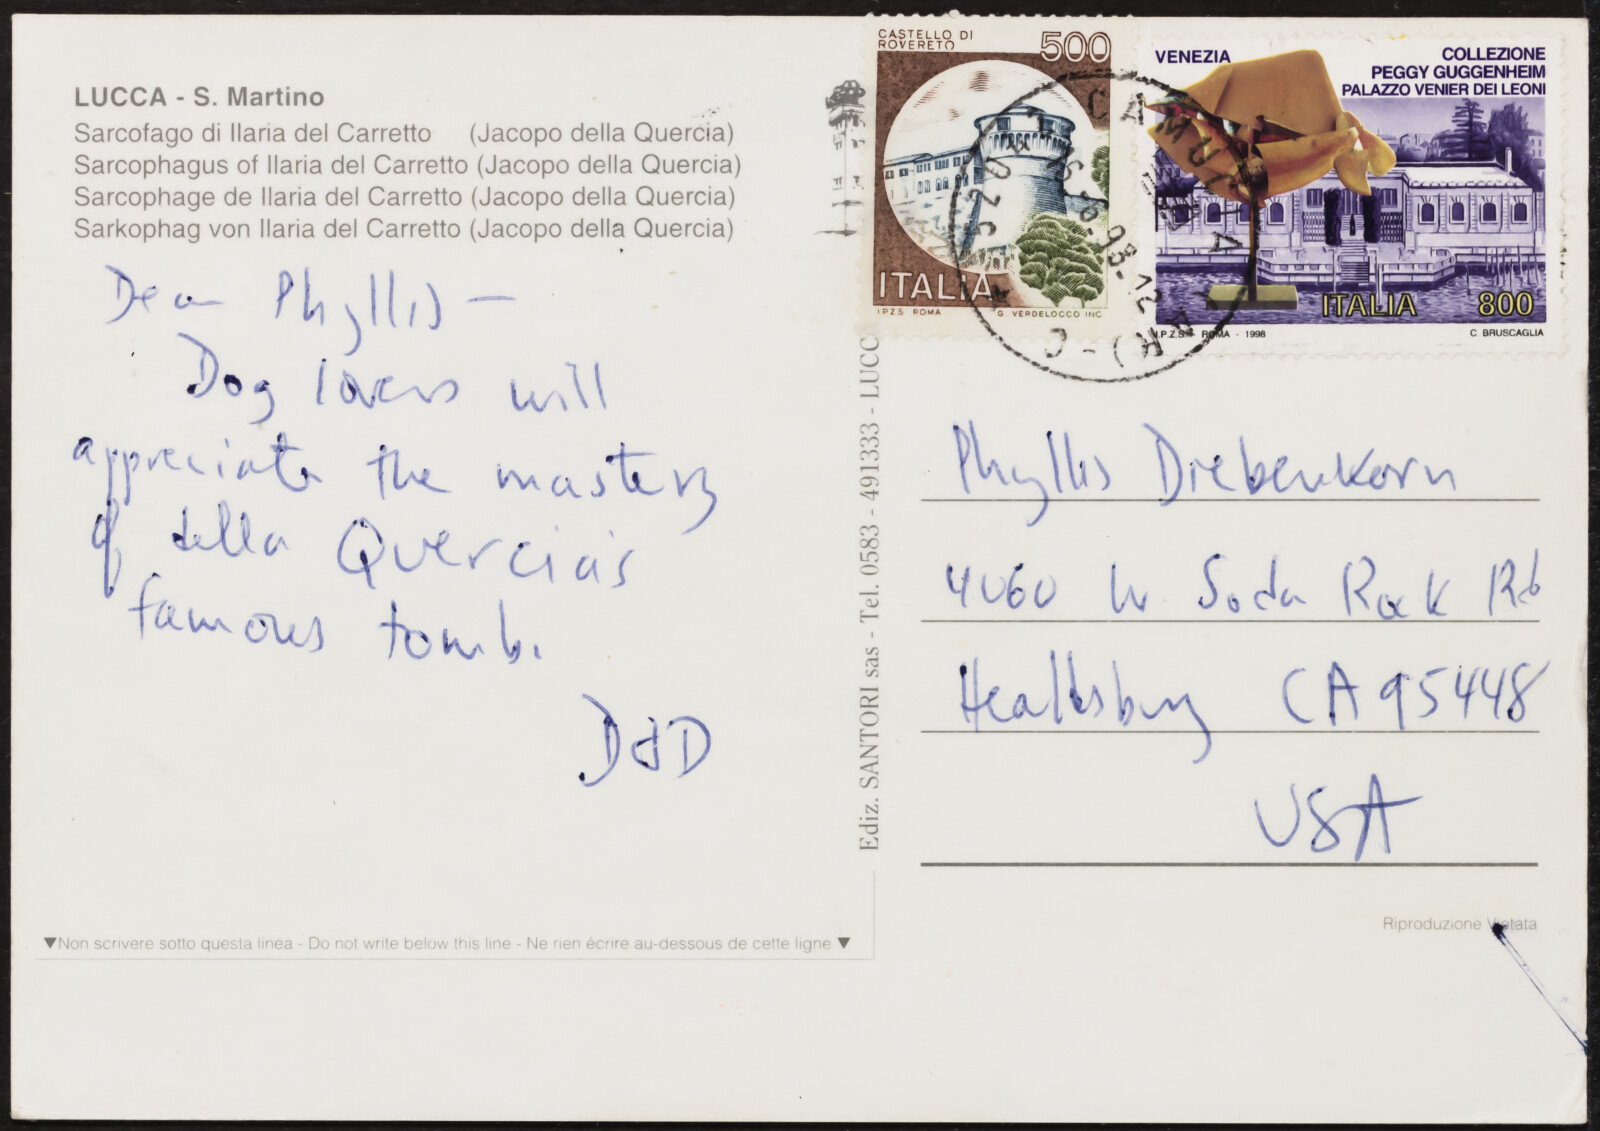 LUCCA - S. Martino
Sarcofago di Ilaria del Carretto (Jacopo della Quercia)
Sarcophagus of Ilaria del Carretto (Jacopo della Quercia)
Sarcophage de Ilaria del Carretto (Jacopo della Quercia)
Sarkophag von Ilaria del Carretto (Jacopo della Quercia)
Dear Phyllis —
Dog lovers will
appreciate the mastery
of della Quercia's
famous tomb.
DdD
▼Non scrivere sotto questa linea - Do not write below this line - Ne rien écrire au-dessous de cette ligne ▼
Ediz. SANTORI sas - Tel. 0583 - 491333 - LUCC
CASTELLO DI
ROVERETO
500
ITALIA
I.P.Z.S. ROMA G. VERDELOCCO INC.
VENEZIA
COLLEZIONE
PEGGY GUGGENHEIM
PALAZZO VENIER DEI LEONI
ITALIA 800
I.P.Z.S. ROMA - 1998 C. BRUSCAGLIA
CAMUCIA
98-12
(AR) - C
Phyllis Diebenkorn
4060 W Soda Rock Rd
Healdsburg CA 95448
USA
Riproduzione Vietata